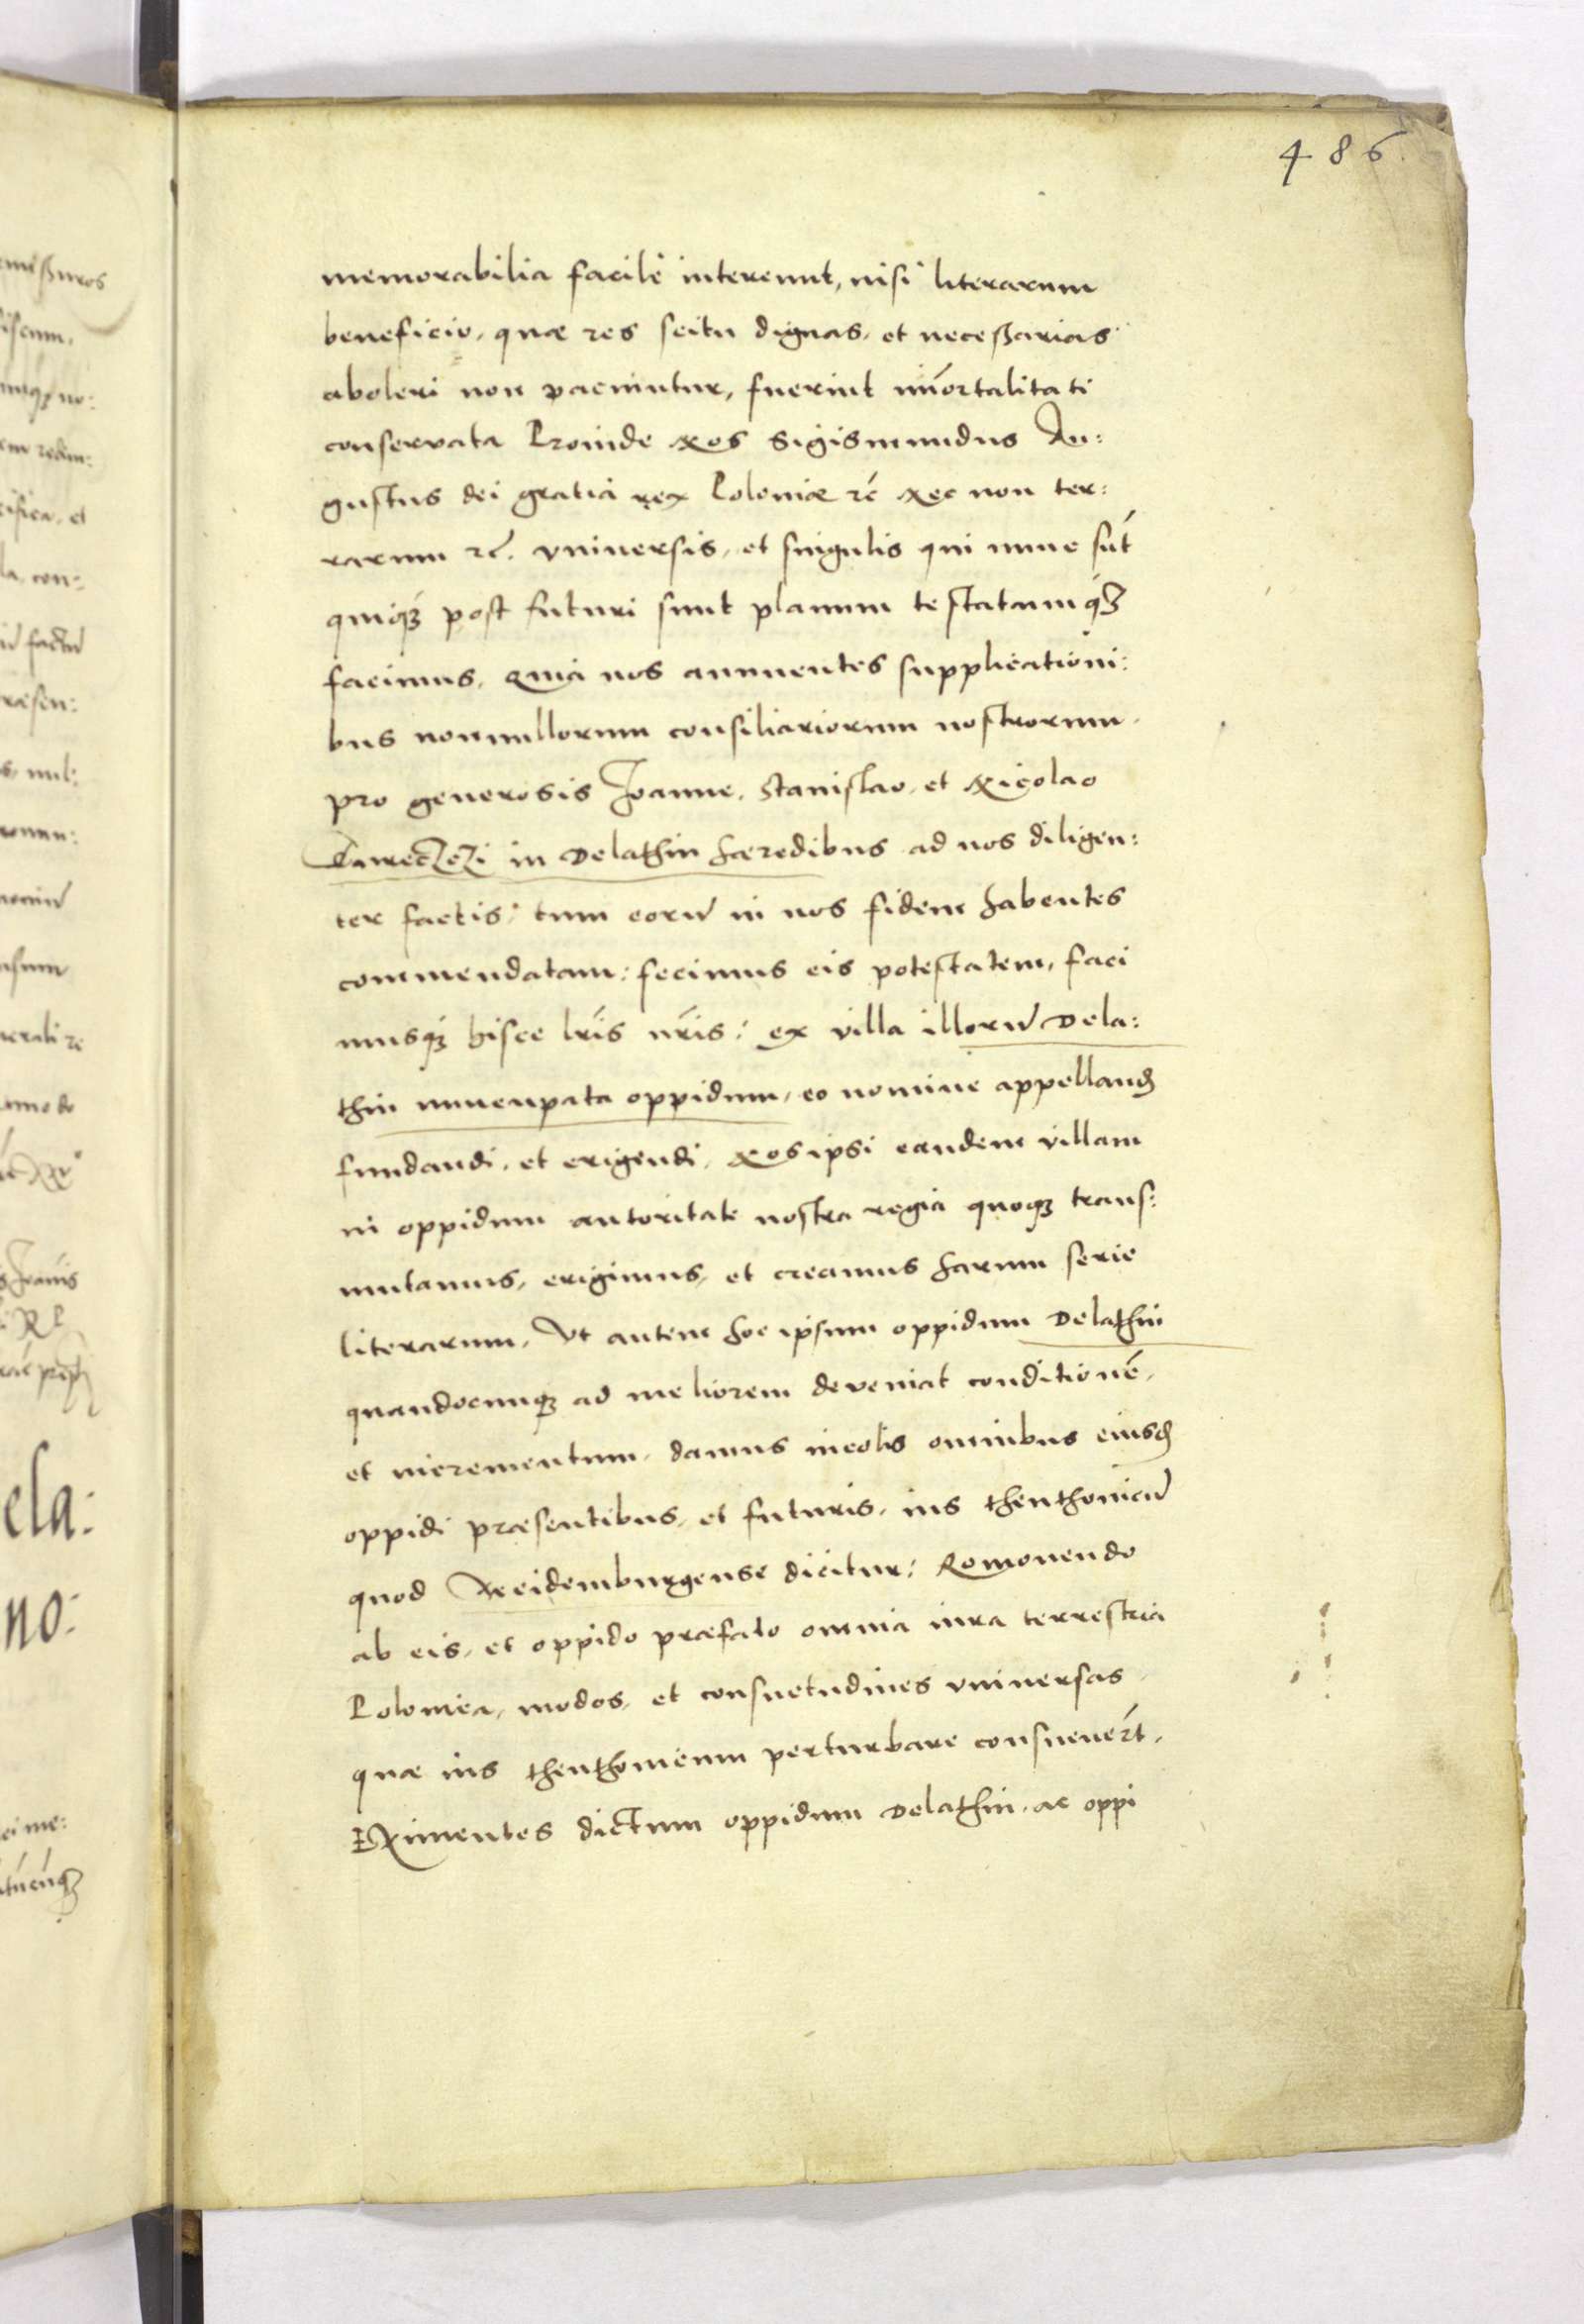 486
memorabilia facile intereunt, nisi literarum
beneficio, quae res scitu dignas, et necessarias
aboleri non paciuntur, fuerint im̄ortalitati
conservata Proinde Nos Sigismundus Au:
gustus dei gratia rex Poloniae rc̄ Nec non ter:
rarum rc̄. vniuersis, et singulis qui nunc sūt
quiqȝ post futuri sunt planum testatumqȝ
facimus, Quia nos annuentes supplicationi:
bus nonnullorum consiliariorum nostrorum
pro generosis Joanne, Stanislao, et Nicolao
in Delathin haeredibus ad nos diligen:
ter factis: tum eorū in nos fidem habentes
commendatam: fecimus eis potestatem, faci
musqȝ hisce lr̄is nr̄is: ex villa illorū Dela:
thin nuncupata oppidum, eo nomine appellanđ
fundandi, et erigendi, Nos ipsi eandem villam
in oppidum autoritate nostra regia quoqȝ trans:
mutamus, erigimus, et creamus harum serie
literarum, Vt autem hoc ipsum oppidum Delathin
quandocunqȝ ad meliorem deveniat conditionē,
et incrementum, damus incolis omnibus eiusđ
oppidi praesentibus, et futuris, ius thenthonicū
quod Meidemburgense dicitur: Removendo
ab eis, et oppido praefato omnia iura terrestria
Polonica, modos, et consuetudines vniuersas,
quae ius thenthonicum perturbare consueuer̄t,
Eximentes dictum oppidum Delathin, ac oppi
ela:
no: